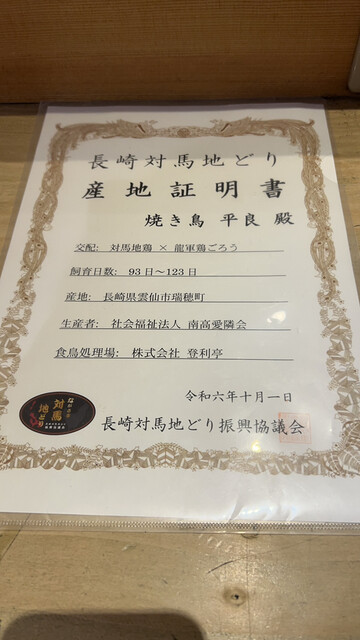 長崎対馬地どり
産地証明書
焼き鳥 平良 殿
交配: 対馬地鶏 × 龍軍鶏ごろう
飼育日数: 93日～123日
産地: 長崎県雲仙市瑞穂町
生産者: 社会福祉法人 南高愛隣会
食鳥処理場: 株式会社 登利亭
令和六年十月一日
対馬
地どり
長崎対馬地どり振興協議会